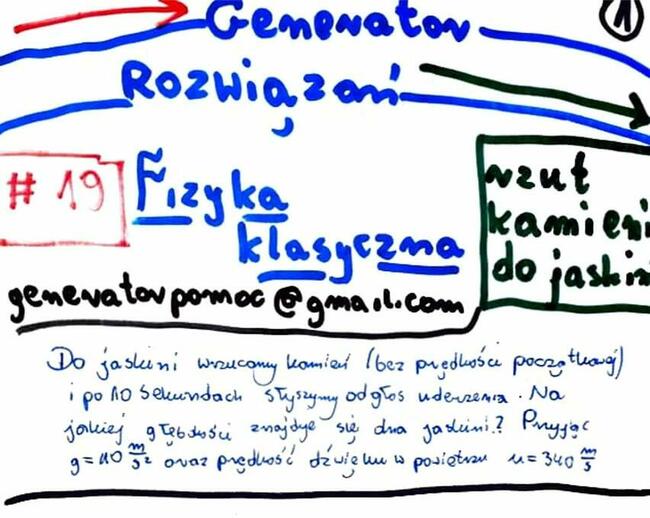 Generator
1
Rozwiązań
# 19
Fizyka
klasyczna
rzut
kamieni
do jaskin
generatorpomoc@gmail.com
Do jaskini wrzucamy kamień (bez prędkości początkowej)
i po 10 sekundach słyszymy odgłos uderzenia. Na
jakiej głębokości znajduje się dno jaskini? Przyjąć
g = 10 m/s² oraz prędkość dźwięku w powietrzu u = 340 m/s